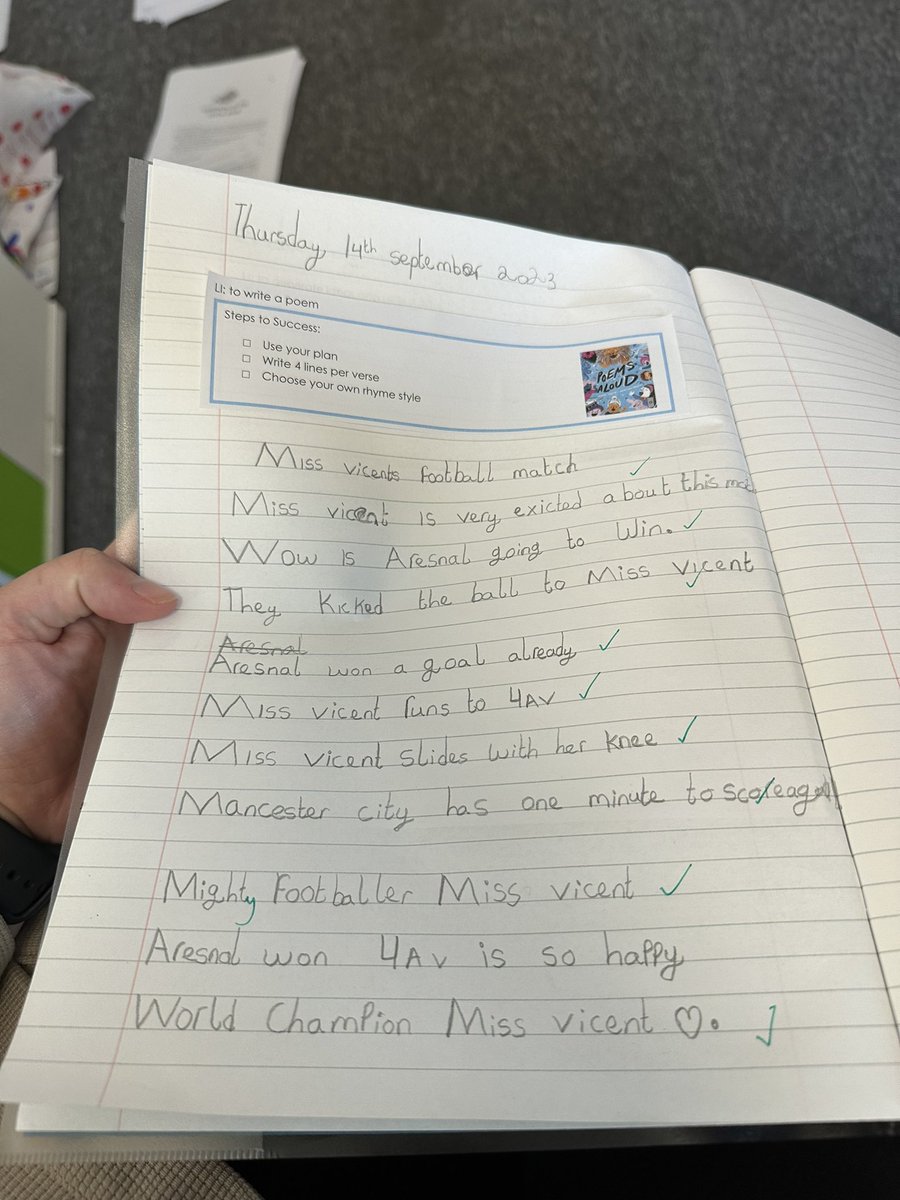 Thursday, 14th september 2023
LI: to write a poem
Steps to Success:
Use your plan
Write 4 lines per verse
Choose your own rhyme style
POEMS
ALOUD
Miss vicents football match
Miss vicent is very exicted about this
Wow is Aresnal going to win.
They kicked the ball to Miss Vicent
Aresnal
Aresnal won a goal already
Miss vicent runs to 4AV
Miss vicent slides with her knee
Mancester city has one minute to score a goal
Mighty footballer Miss vicent
Aresnal won 4Av is so happy
World Champion Miss vicent ♡.